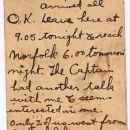 arrived all
O.K. Leave here at
9.05 tonight & reach
Norfolk 6.00 tomorrow
night. The Captain
had another talk
with me & seems
interested in me.
Only 2 of us went from